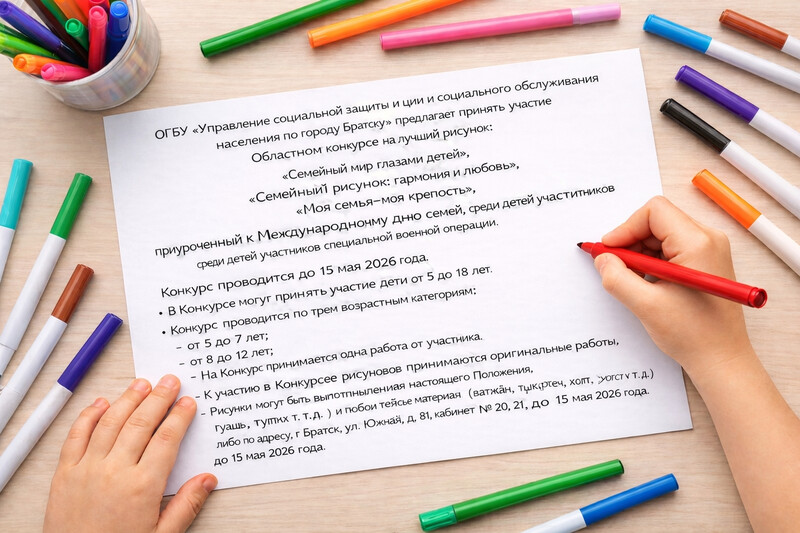 ОГБУ «Управление социальной защиты и ции и социального обслуживания
населения по городу Братску» предлагает принять участие
Областном конкурсе на лучший рисунок:
«Семейный мир глазами детей»,
«Семейный рисунок: гармония и любовь»,
«Моя семья–моя крепость»,
приуроченный к Международному дню семей, среди детей участитников
среди детей участников специальной военной операции.
Конкурс проводится до 15 мая 2026 года.
• В Конкурсе могут принять участие дети от 5 до 18 лет.
• Конкурс проводится по трем возрастным категориям:
– от 5 до 7 лет;
– от 8 до 12 лет;
– На Конкурс принимается одна работа от участника.
– К участию в Конкурсее рисунов принимаются оригинальные работы,
– Рисунки могут быть выпотпныления настоящего Положения,
гуашь, т. т.д. ) и побои тейсье материал (ватжан, хопт, т. д.)
либо по адресу, г Братск, ул. Южнай, д. 81, кабинет № 20, 21, до 15 мая 2026 года.
до 15 мая 2026 года.